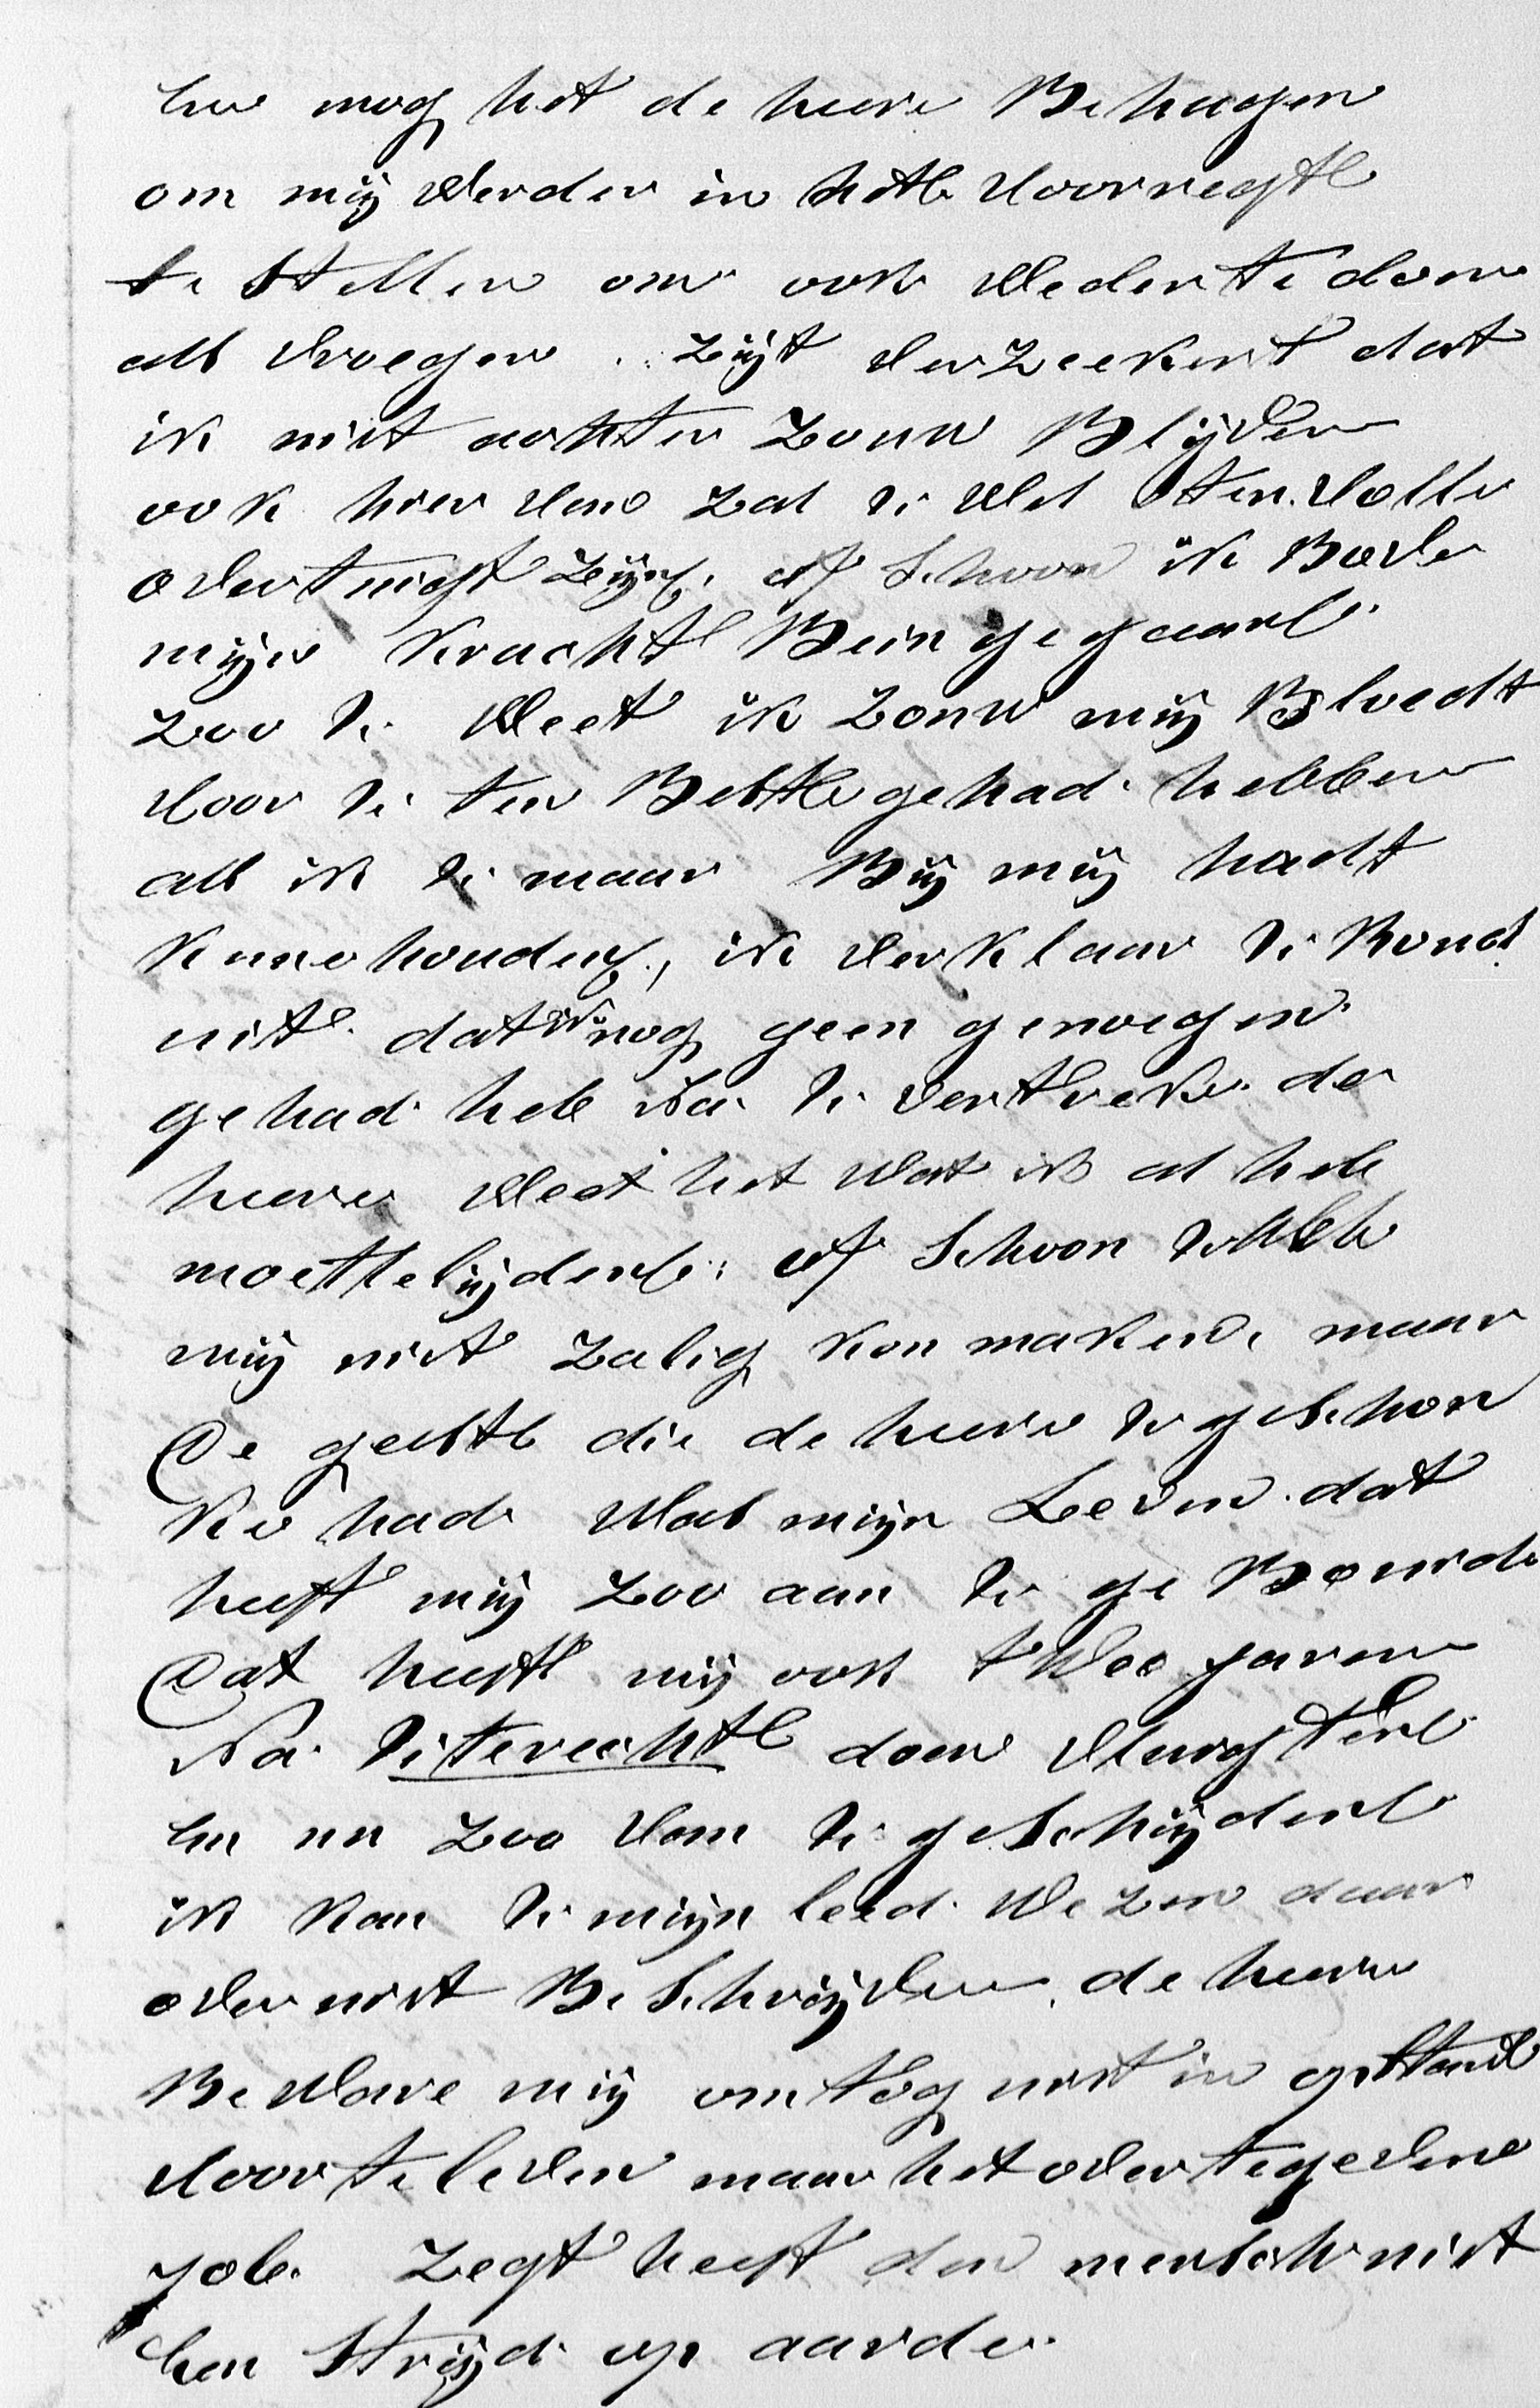 En mog het de heere Behagen
om mij Verder in het Voorregt
te Stellen om ook Weder te doen
als Vroeger. zijt Verzeekert dat
ik niet achter zouw Blijven
ook hier Van zal U Wel ten Volle
overtuigt zijn, of Schoon ik Bove
mijn Kracht Ben gegaan
zoo U Weet ik zouw mijn Bloedt
Voor U ten Beste gehad hebben
als ik U maar Bij mij hadt
kunne houden, ik Verklaar U Rond
uit dat ik nog geen genoegen
gehad heb Na U Vertrek de
heere Weet het Wat ik al heb
moette lijden. of Schoon U
mij niet zalig kon maken, maar
De geest die de heere U geschon
ke had Was mijn Leven dat
heeft mij zoo aan U ge Bonde
Dat heeft mij ook twee jaren
Na Uterecht doen Vlugten
En nu zoo Van U geschijden
ik kan U mijn leed Wezen daar
over niet Beschrijven. de heere
Be Ware mij om tog niet in opstand
Voor te leven maar het over te geven
job zegt heeft den mensch niet
Een Strijd op aarde